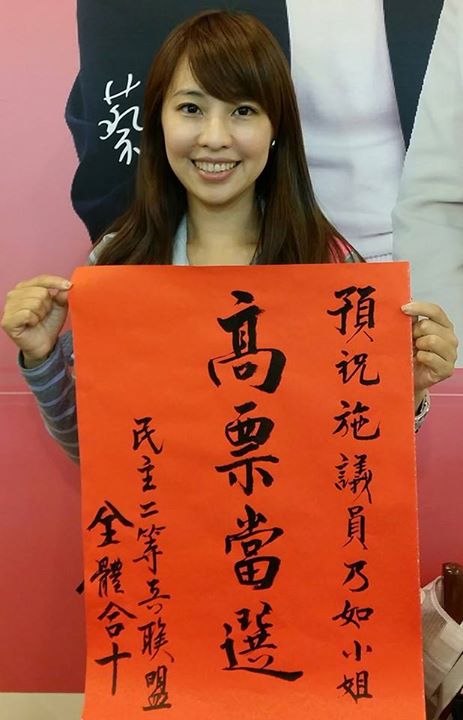 預祝施議員乃如小姐
高票當選
民主二等兵聯盟
全體合十
蔡